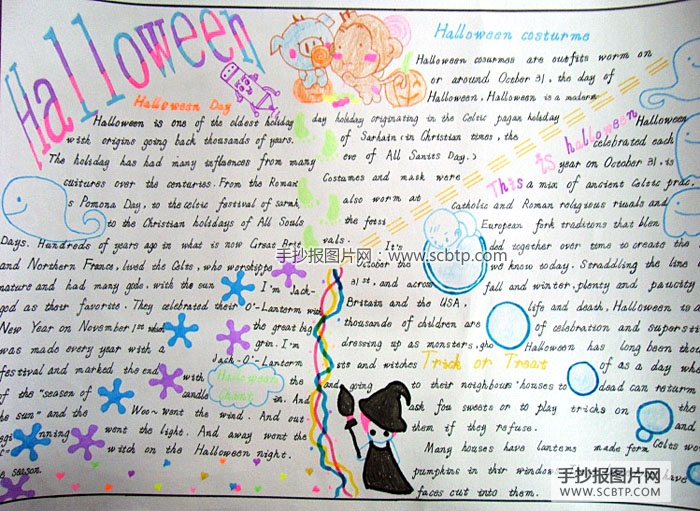 Halloween
Halloween Day
Halloween is one of the oldest holiday
with origins going back thousands of years.
The holiday has had many influences from many
cuitures over the centuries. From the Roman
s Pomona Day, to the celtic festival of samh
to the Christian holidays of All Souls
Days. Hundreds of years ago in what is now Great Brit
and Northern France, lived the Celts. who worshippe
nature and had many gods, with the sun
god as their favorite. They celebrated their
New Year on November 1st when
was made every year with a
festival and marked the end
of the "season of
the sun" and the
egi nning
the season.
I'm Jack-
O'-Lantern with
the great big
grin. I'm
Jack-O'-Lantern
with the
candle in. And
Woo-went the wind. And out
went the light. And away went the
witch on the Halloween night.
Halloween
Chant
Halloween costurme
Halloween cosurmes are outfits worm on
or around Octcber 31, the day of
Halloween, Halloween is a modern
day holiday originating in the Celtic pagan holiday
of Sarhain (in Christian times, the
eve of All Sanits Day.)
Costumes and mask were
also worm at
the festi
vals.
This is halloween
It's
October the
31st, and across
Britain and the USA,
thousands of children are
dressing up as monsters, gho
sts and witches
and going to their neighbours' houses to
ask fou sweets or to play tricks on
them if they refuse.
Many houses have lantems made form
pumpkins in thir windows
faces cut into them.
Trick or Treat
Halloween
celebrated each
year on October 31, is
a mix of ancient Celtic prac
Catholic and Roman religious rituals and
European fork traditons that blen
ded together over time to create the
we know today. Straddling the line
fall and winter, plenty and paucity
life and death, Halloween is
of celebration and supersti
Halloween has long been thou
of as a day whe
dead can return
the
and
Celts wo
have
手抄报图片网：www.scbtp.com
手抄报图片网
WWW.SCBTP.COM